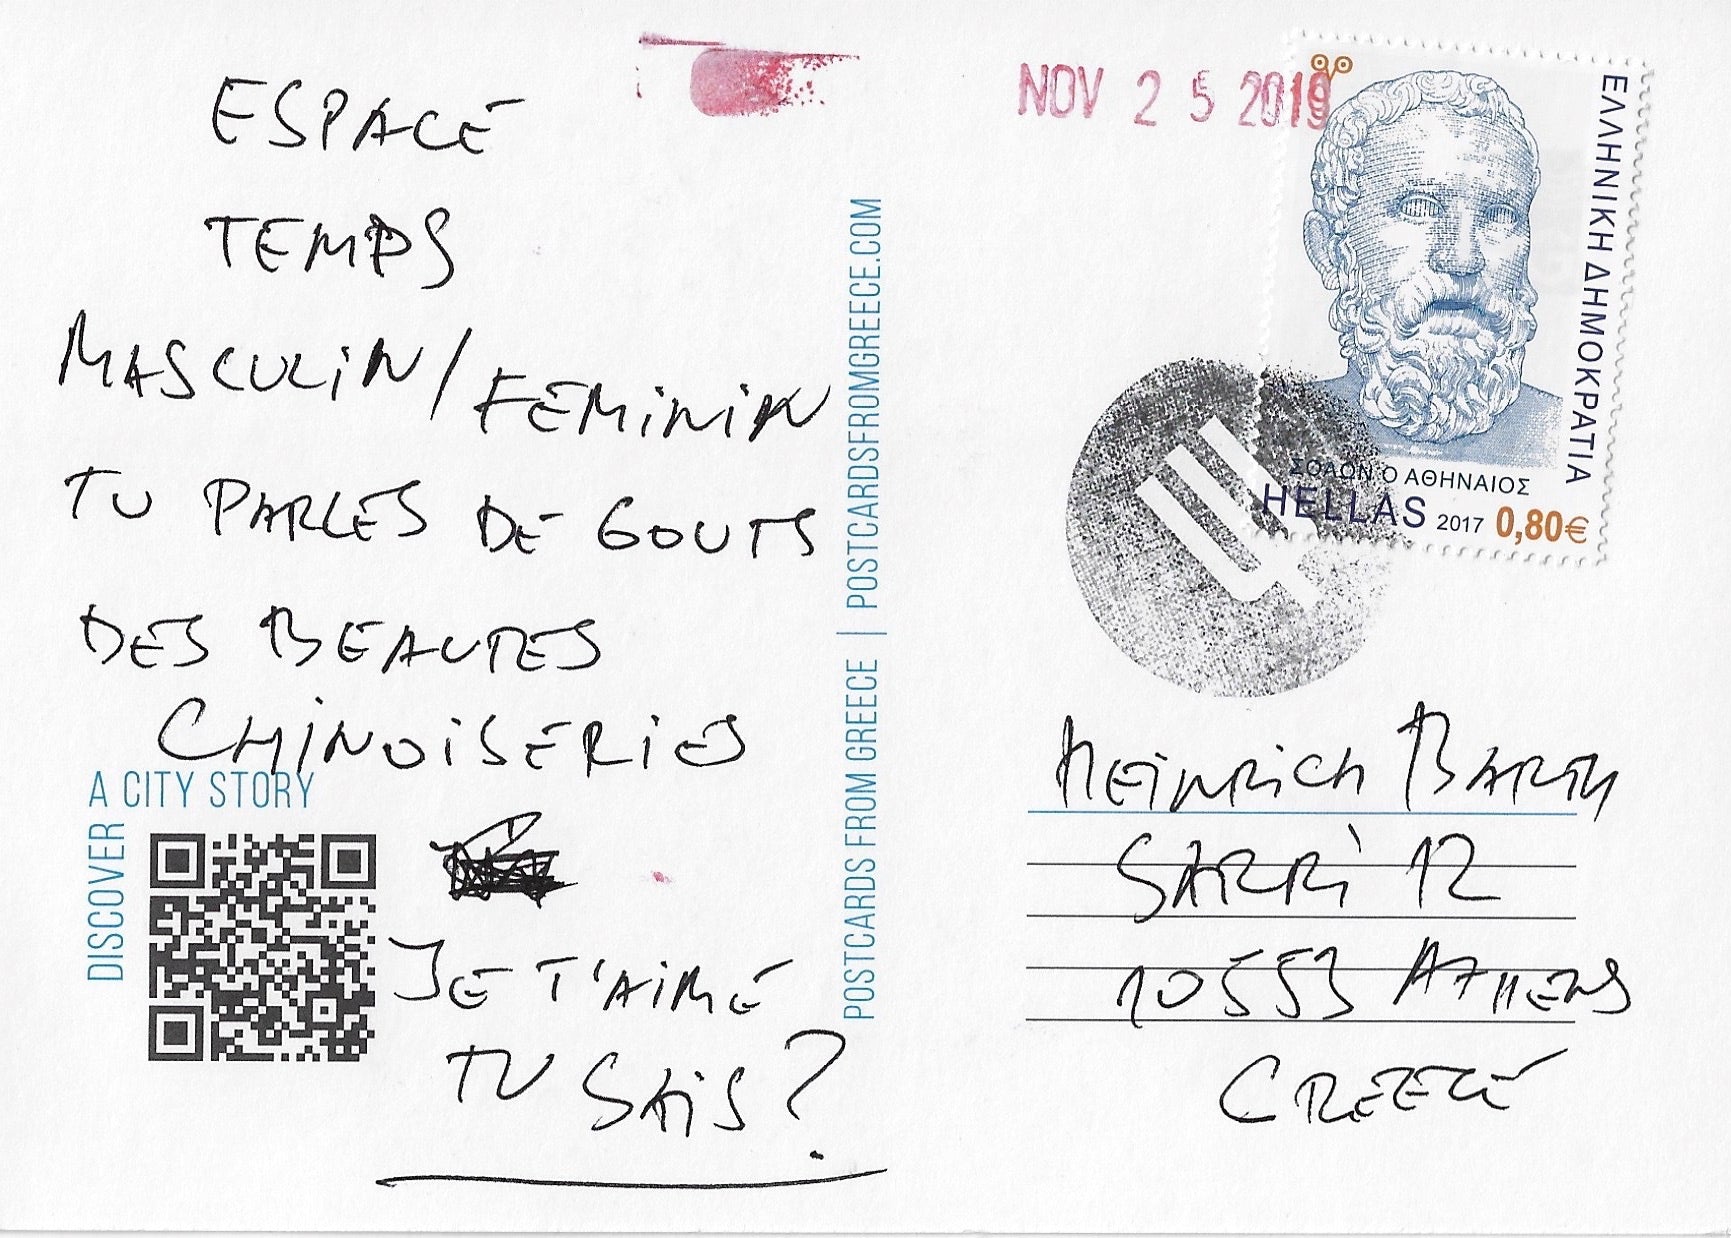 ESPACE
TEMPS
MASCULIN / FEMININ
TU PARLES DE GOUTS
DES BEAUTES
CHINOISERIES
JE T'AIME
TU SAIS?
A CITY STORY
DISCOVER
POSTCARDS FROM GREECE | POSTCARDSFROMGREECE.COM
NOV 25 2019
ΕΛΛΗΝΙΚΗ ΔΗΜΟΚΡΑΤΙΑ
ΣΟΛΩΝ Ο ΑΘΗΝΑΙΟΣ
HELLAS 2017 0,80€
HEINRICH BARTH
SARRI 12
10553 ATHENS
GREECE